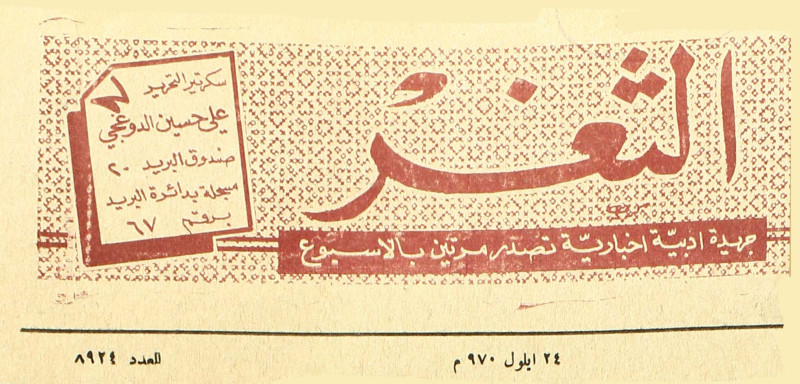 الثغر
جريدة ادبية اخبارية تصدر مرتين بالاسبوع
سكرتير التحرير
علي حسين الدوغجي
صندوق البريد ٢٠
مسجلة بدائرة البريد
برقم ٦٧
٢٤ ايلول ٩٧٠ م
العدد ٨٩٢٤